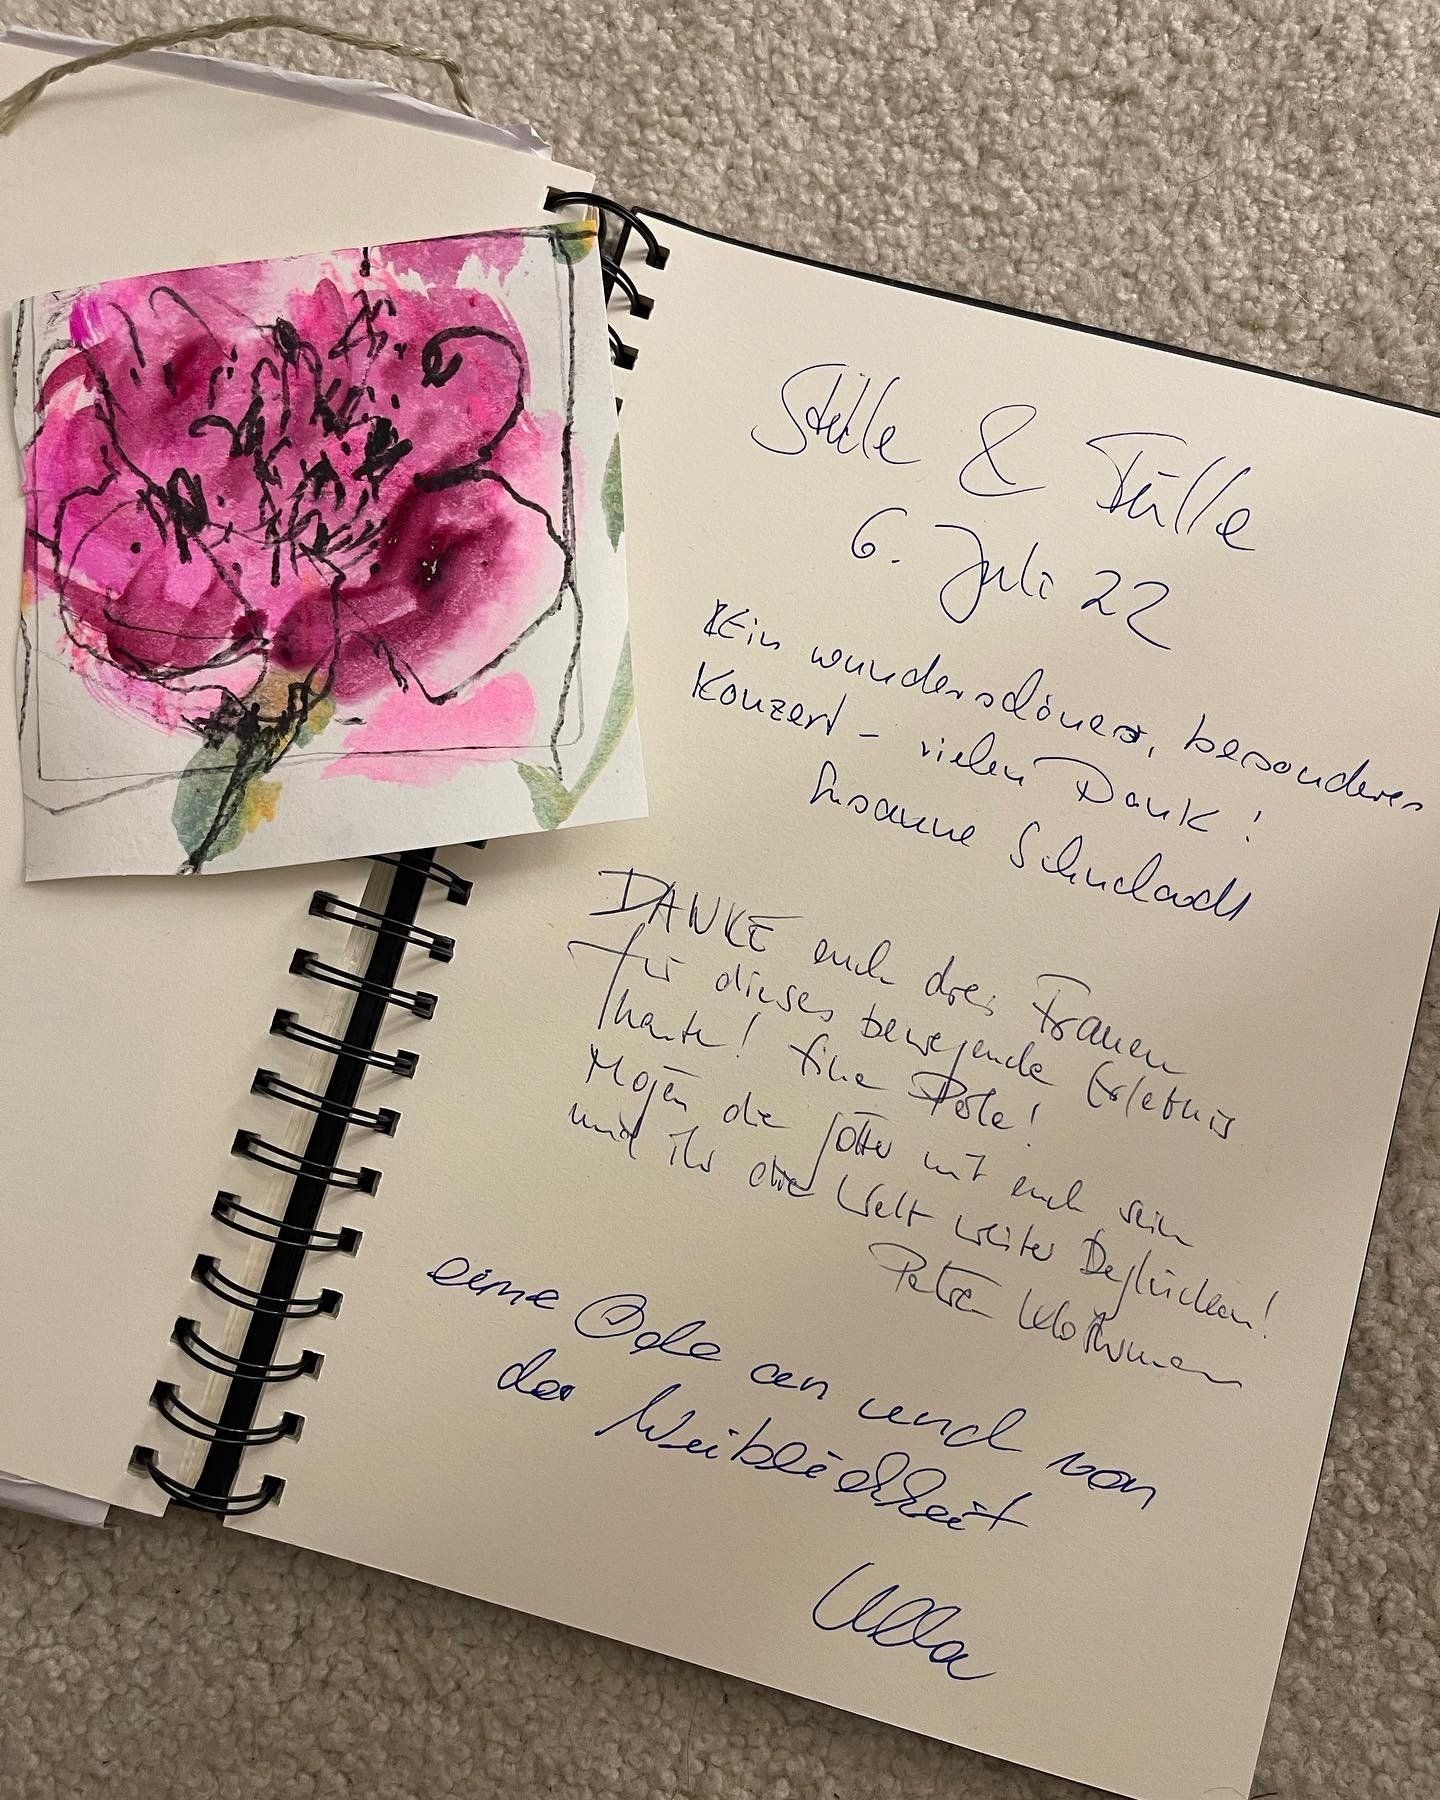 Stille & Fülle
6. Juli 22
Ein wunderschönes, besonderes
Konzert - vielen Dank!
Susanne
DANKE euch drei Frauen
für dieses bewegende Erlebnis
heute! Eine Perle!
Mögen die Götter mit euch sein
und ihr die Welt weiter Beglücken!
Petra
eine Ode an und von
der Weiblichkeit
Ulla